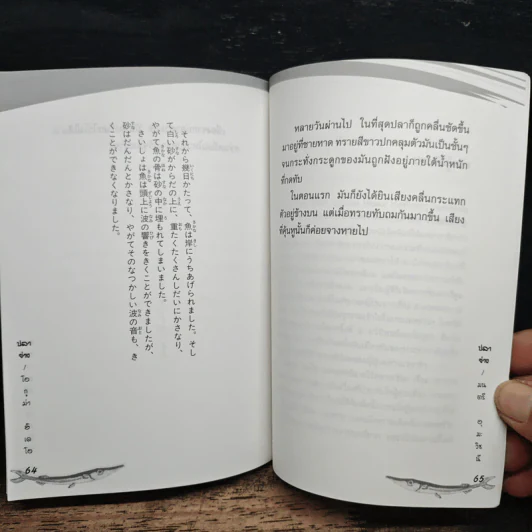 それから幾日かたって、魚は岸にうちあげられました。そし
て白い砂がからだの上に、重たくたくさんしだいにかさなり、
やがて魚の骨は砂の中に埋もれてしまいました。
さいしょは魚は頭上に波の響きをきくことができましたが、
砂はだんだんとかさなり、やがてそのなつかしい波の音も、き
くことができなくなりました。
64
หลายวันผ่านไป ในที่สุดปลาก็ถูกคลื่นซัดขึ้น
มาอยู่ที่ชายหาด ทรายสีขาวปกคลุมตัวมันเป็นชั้นๆ
จนกระทั่งกระดูกของมันถูกฝังอยู่ภายใต้น้ำหนัก
ที่กดทับ
ในตอนแรก มันก็ยังได้ยินเสียงคลื่นกระแทก
ตัวอยู่ข้างบน แต่เมื่อทรายทับถมกันมากขึ้น เสียง
ที่คุ้นหูนั้นก็ค่อยจางหายไป
65